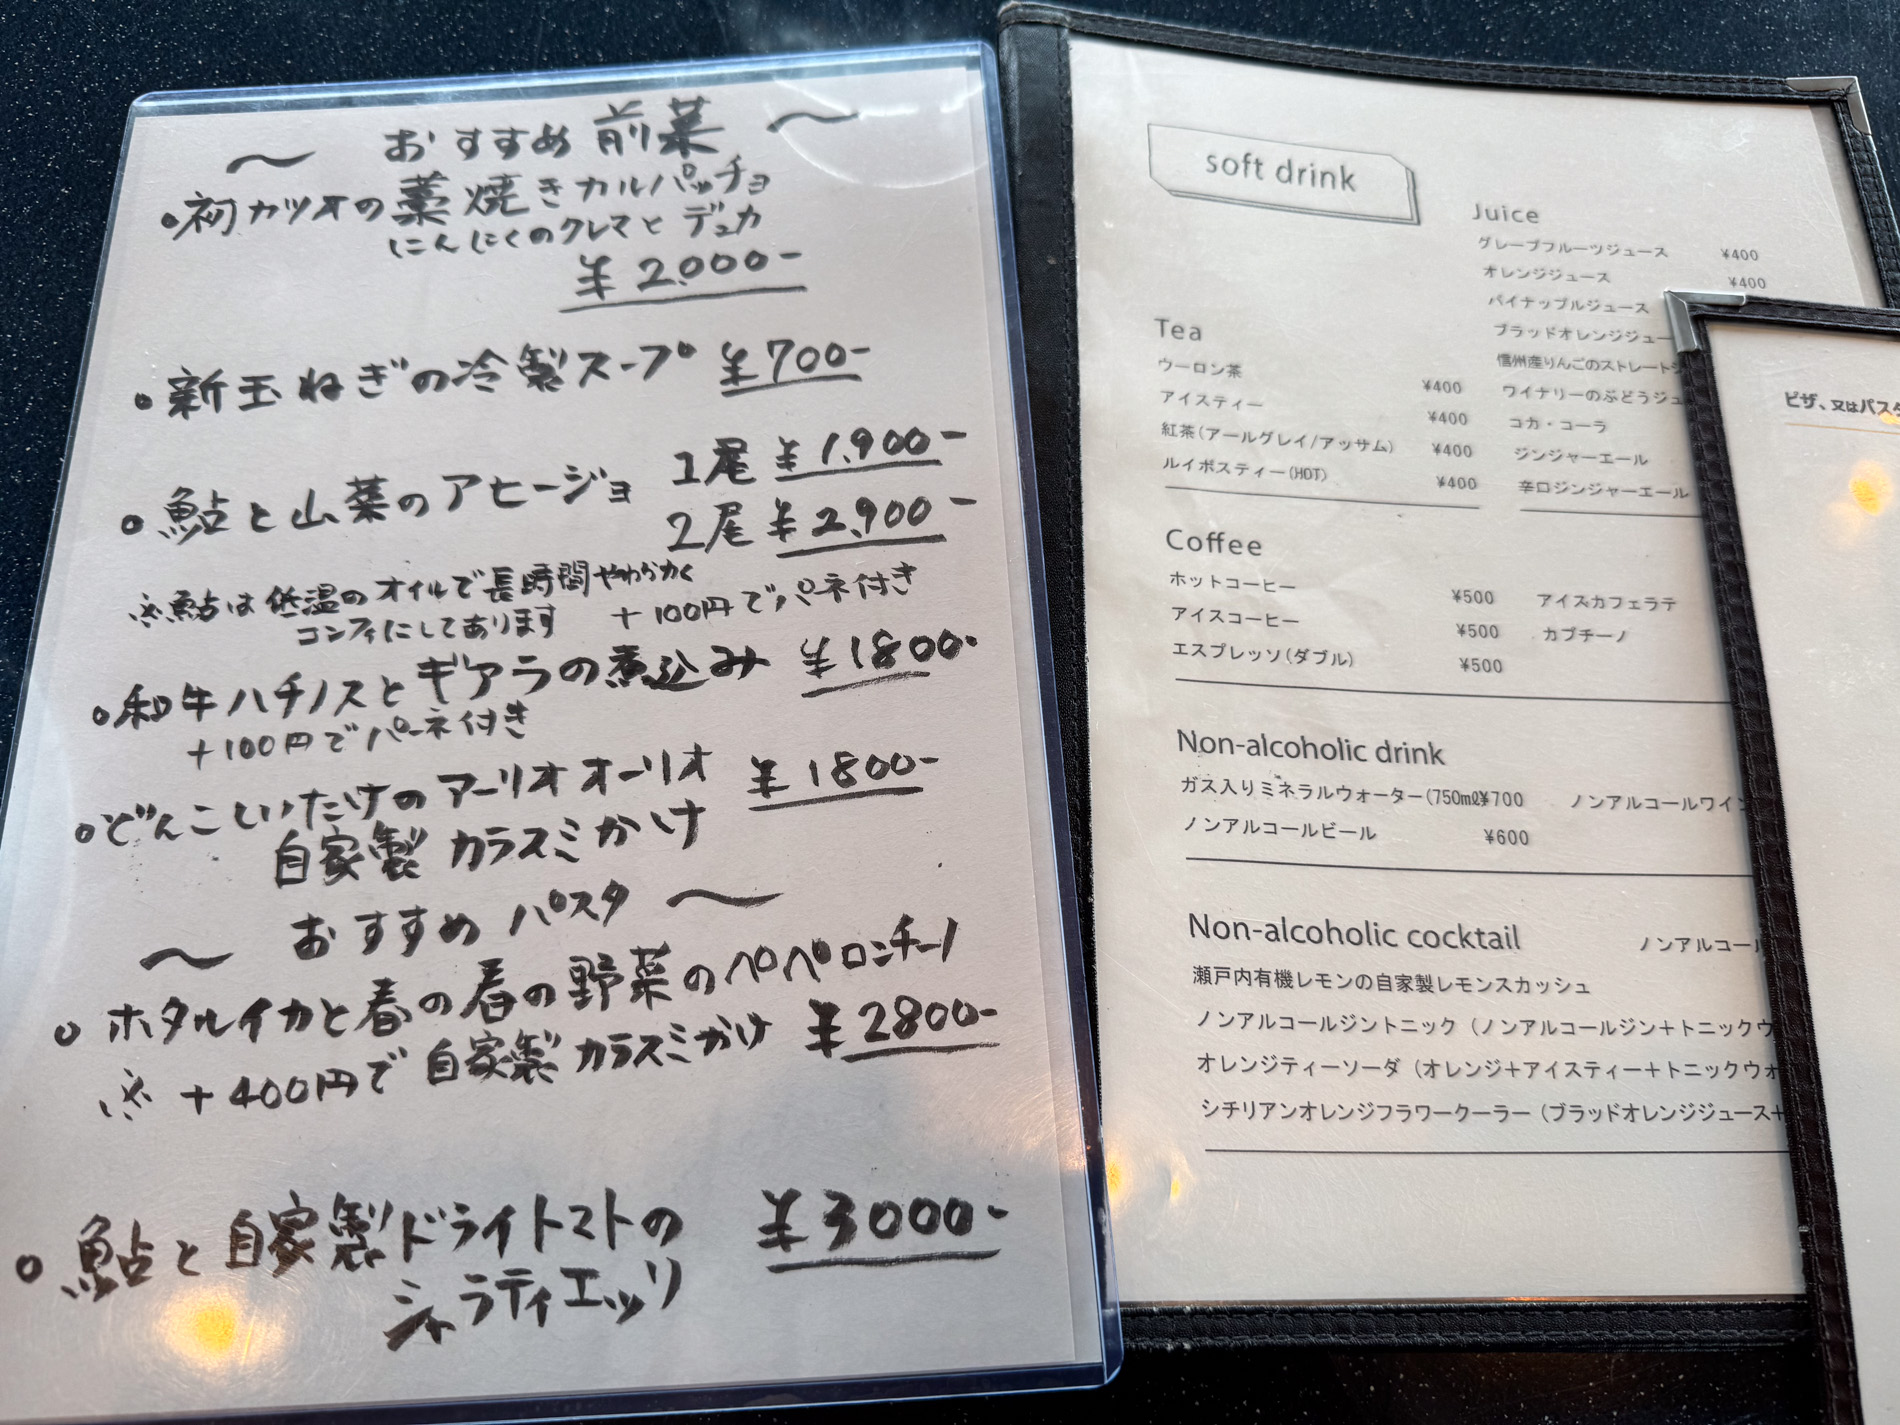 〜 おすすめ 前菜 〜
・初カツオの藁焼きカルパッチョ
にんにくのクレマと デュカ
¥2,000-
・新玉ねぎの冷製スープ ¥700-
・鮎と山菜のアヒージョ 1尾 ¥1,900-
2尾 ¥2,900-
※鮎は低温のオイルで長時間やわらかく
コンフィにしてあります +100円でパーネ付き
・和牛ハチノスとギアラの煮込み ¥1800-
+100円でパーネ付き
・どんこしいたけのアーリオオーリオ ¥1800-
自家製 カラスミかけ
〜 おすすめ パスタ 〜
・ホタルイカと春の春の野菜のペペロンチーノ
¥2800-
※ +400円で自家製カラスミかけ
・鮎と自家製ドライトマトの ¥3000-
シャラティエッリ
soft drink
Tea
ウーロン茶 ¥400
アイスティー ¥400
紅茶(アールグレイ/アッサム) ¥400
ルイボスティー(HOT) ¥400
Juice
グレープフルーツジュース ¥400
オレンジジュース ¥400
パイナップルジュース
ブラッドオレンジジュー
信州産りんごのストレート
ワイナリーのぶどうジュ
コカ・コーラ
ジンジャーエール
辛口ジンジャーエール
Coffee
ホットコーヒー ¥500
アイスコーヒー ¥500
エスプレッソ(ダブル) ¥500
アイスカフェラテ
カプチーノ
Non-alcoholic drink
ガス入りミネラルウォーター(750ml¥700 ノンアルコールワイン
ノンアルコールビール ¥600
Non-alcoholic cocktail ノンアルコール
瀬戸内有機レモンの自家製レモンスカッシュ
ノンアルコールジントニック (ノンアルコールジン+トニックウ
オレンジティーソーダ (オレンジ+アイスティー+トニックウォ
シチリアンオレンジフラワークーラー (ブラッドオレンジジュース+
ピザ、又はパスタ